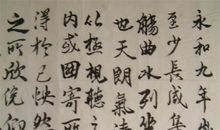 永和九年
至少長咸集
觴曲水列坐
也天朗氣清
以極視聽
内或因寄所
得於己怏然
之所欣俛仰